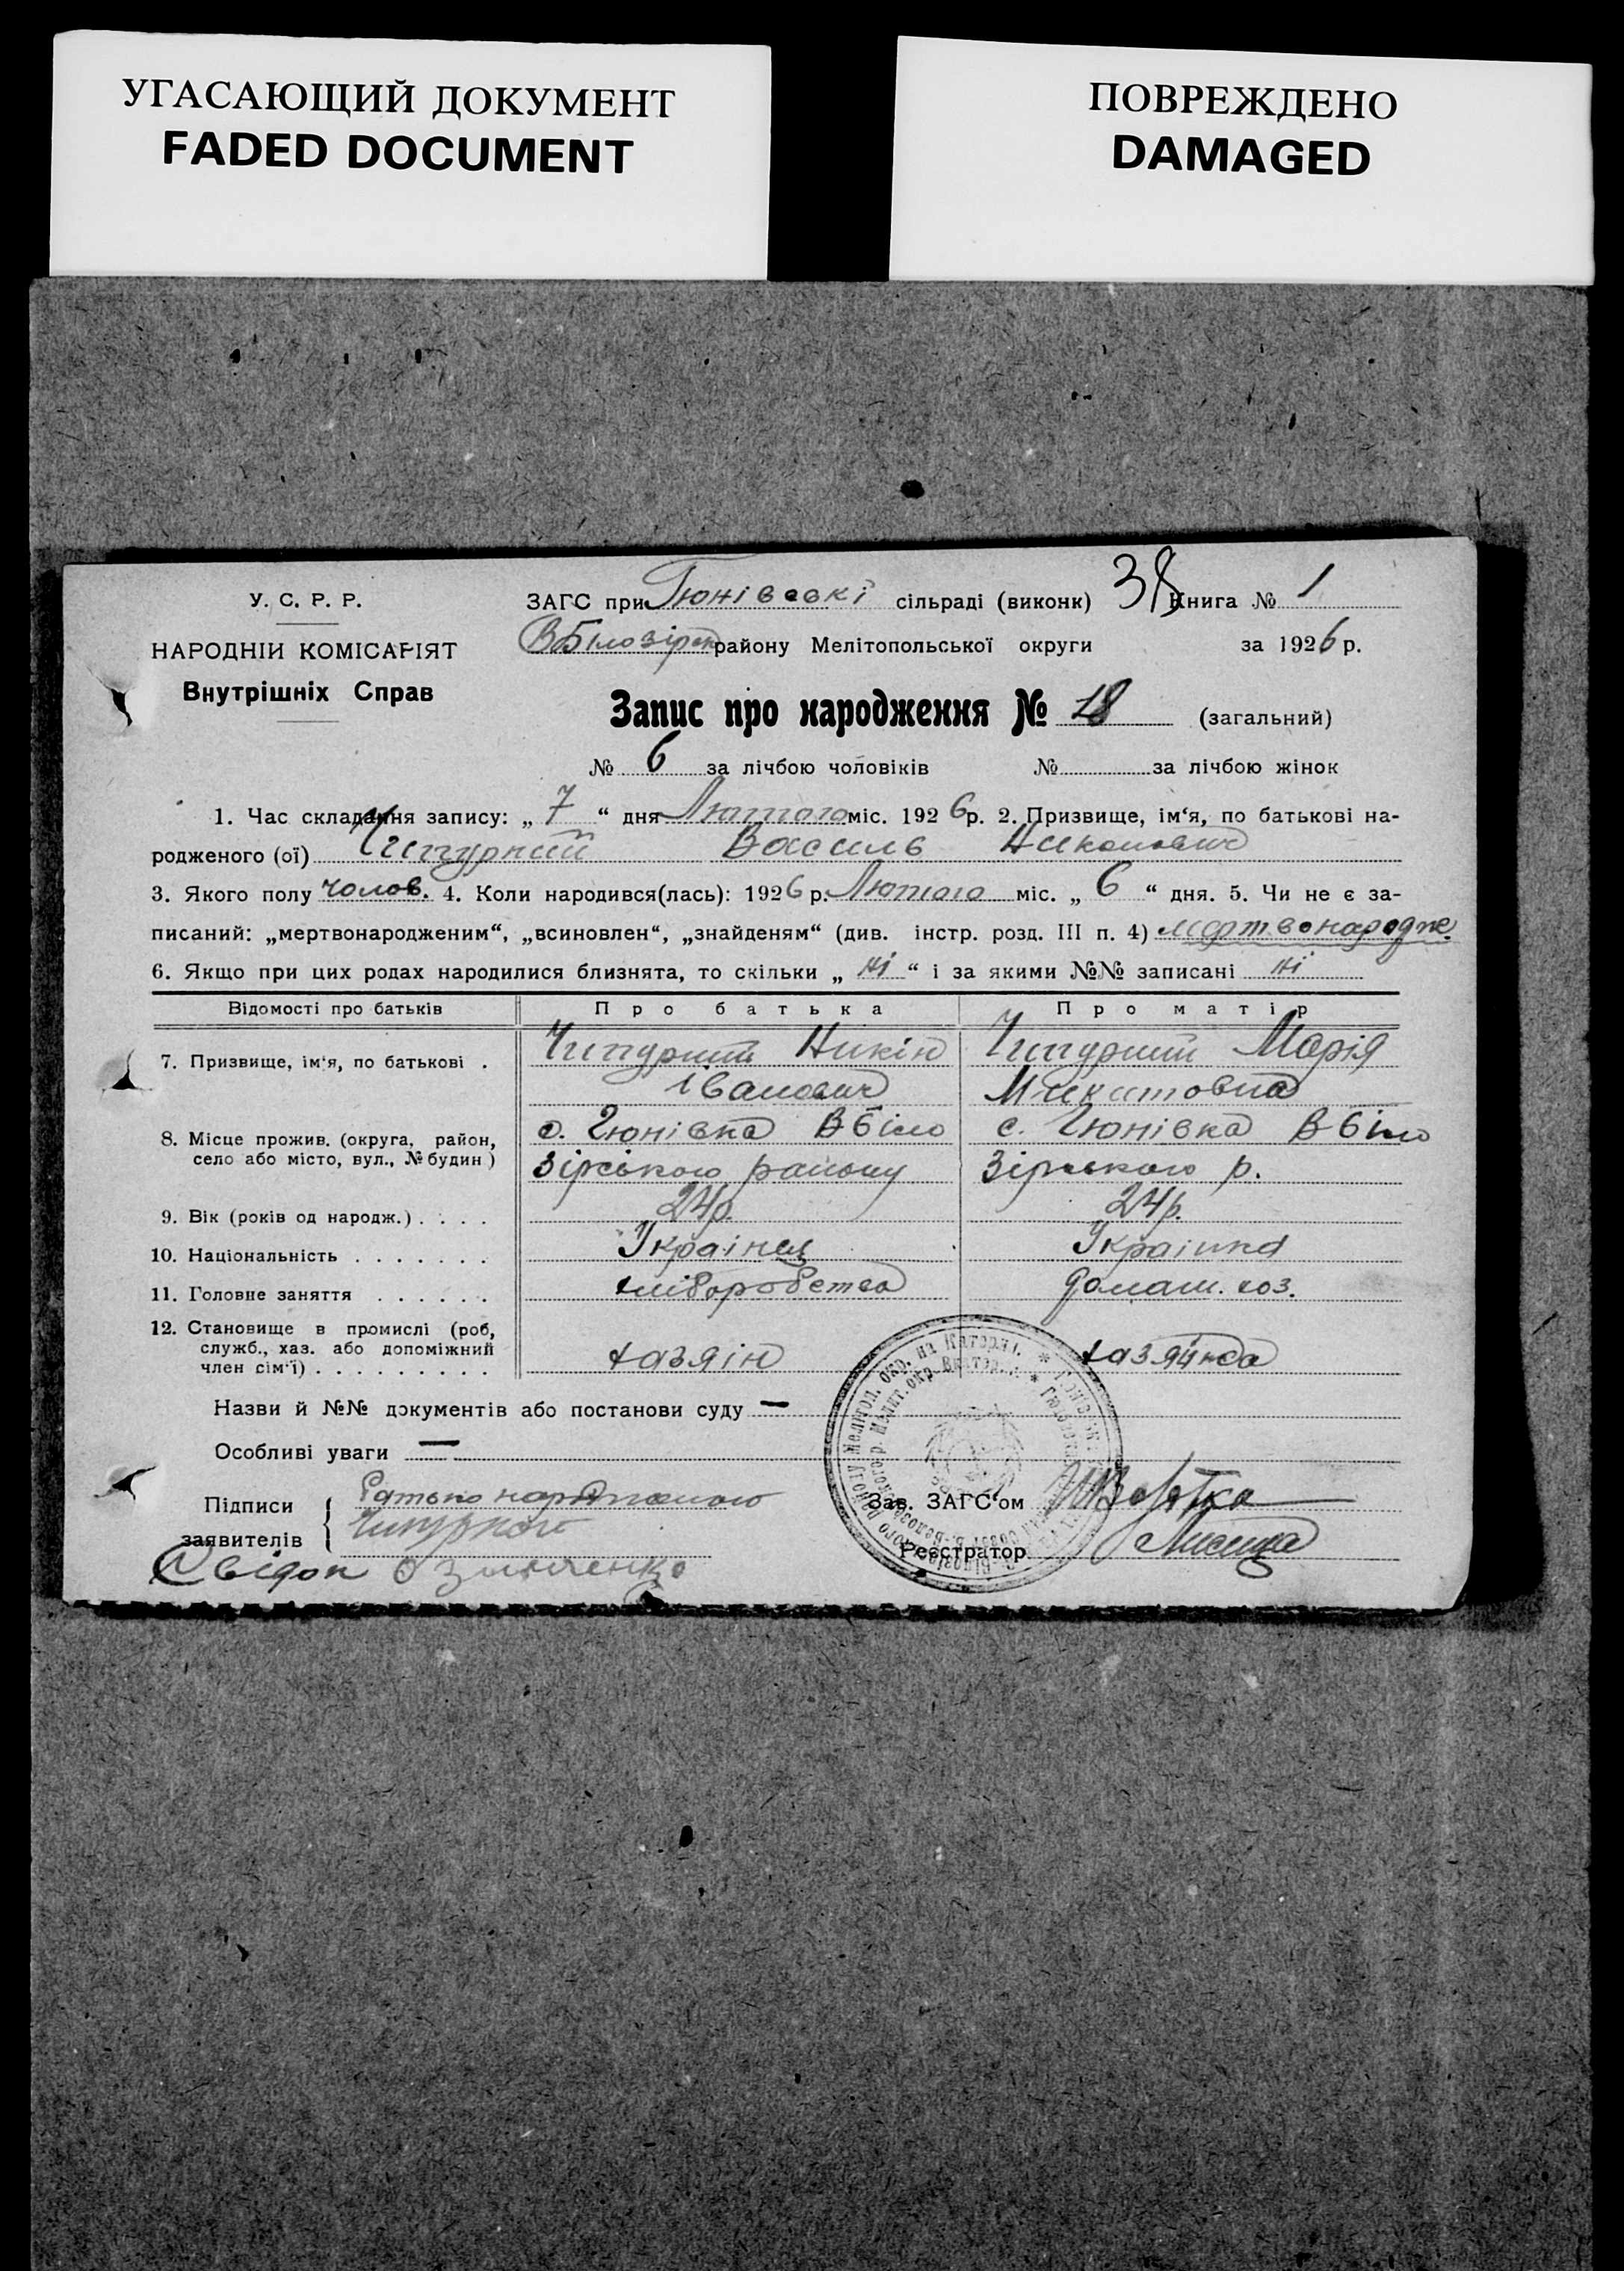 УГАСАЮЩИЙ ДОКУМЕНТ
FADED DOCUMENT
ПОВРЕЖДЕНО
DAMAGED
У. С. Р. Р.
НАРОДНІЙ КОМІСАРІЯТ
Внутрішніх Справ
ЗАГС при Гюнівські сільраді (виконк) 38 Книга № 1
В Білозірск району Мелітопольської округи за 1926 р.
Запис про народження № 18 (загальний)
№ 6 за лічбою чоловіків № за лічбою жінок
1. Час складання запису: „ 7 “ дня Лютого міс. 1926 р. 2. Призвище, ім‘я, по батькові на-
родженого (ої) Чепурний Василь Никонович
3. Якого полу чолов. 4. Коли народився(лась): 1926 р. Лютого міс. „ 6 “ дня. 5. Чи не є за-
писаний: „мертвонародженим“, „всиновлен“, „знайденям“ (див. інстр. розд. III п. 4) мертвонародже.
6. Якщо при цих родах народилися близнята, то скільки „ ні “ і за якими №№ записані ні
Відомості про батьків Про батька Про матір
7. Призвище, ім‘я, по батькові . Чепурний Никін Чепурний Марія
Іванович Микитовна
8. Місце прожив. (округа, район, с. Гюнівка В Біло с. Гюнівка В-Біло
село або місто, вул., № будин ) зірського району зірського р.
9. Вік (років од народж.) . . . . 24 р. 24 р.
10. Національність . . . . . . . Українец Українка
11. Головне заняття . . . . . . хліборобство домаш. хоз.
12. Становище в промислі (роб,
служб., хаз. або допоміжний
член сім‘ї) . . . . . . . . . хазяін хазяйка
Назви й №№ документів або постанови суду —
Особливі уваги —
Підписи
заявителів
Батько
Чепурной
Свідок Зинченко
Зав. ЗАГС‘ом
Реєстратор